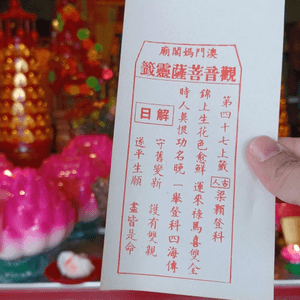 澳門媽閣廟
觀音菩薩靈籤
第四十七上籤
古人 梁顥登科
錦上生花色愈鮮 運來祿馬喜雙全
時人莫恨功名晚 一舉登科四海傳
解日
守舊變新 護有雙親
遂平生願 盡皆是命